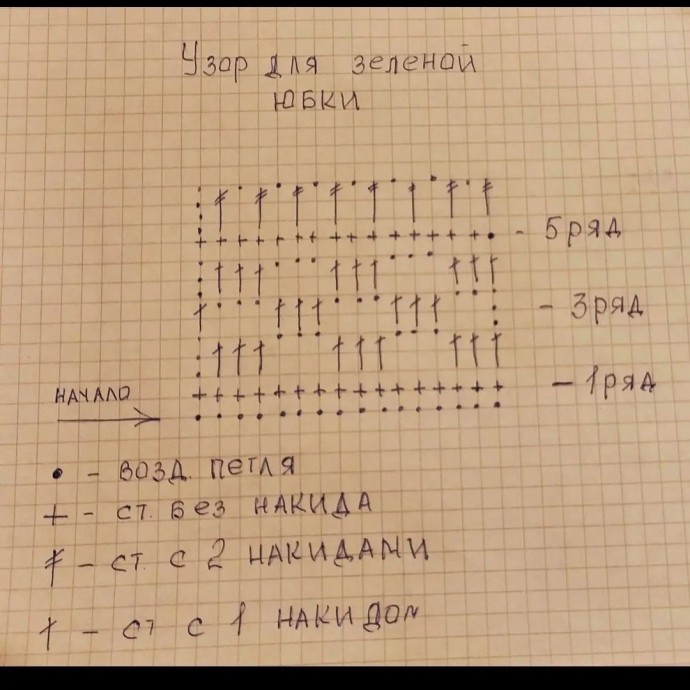 Узор для зеленой
юбки
- 5 ряд
- 3 ряд
НАЧАЛО
- 1 ряд
• - возд. петля
+ - ст. без накида
- ст. с 2 накидами
† - ст с 1 накидом